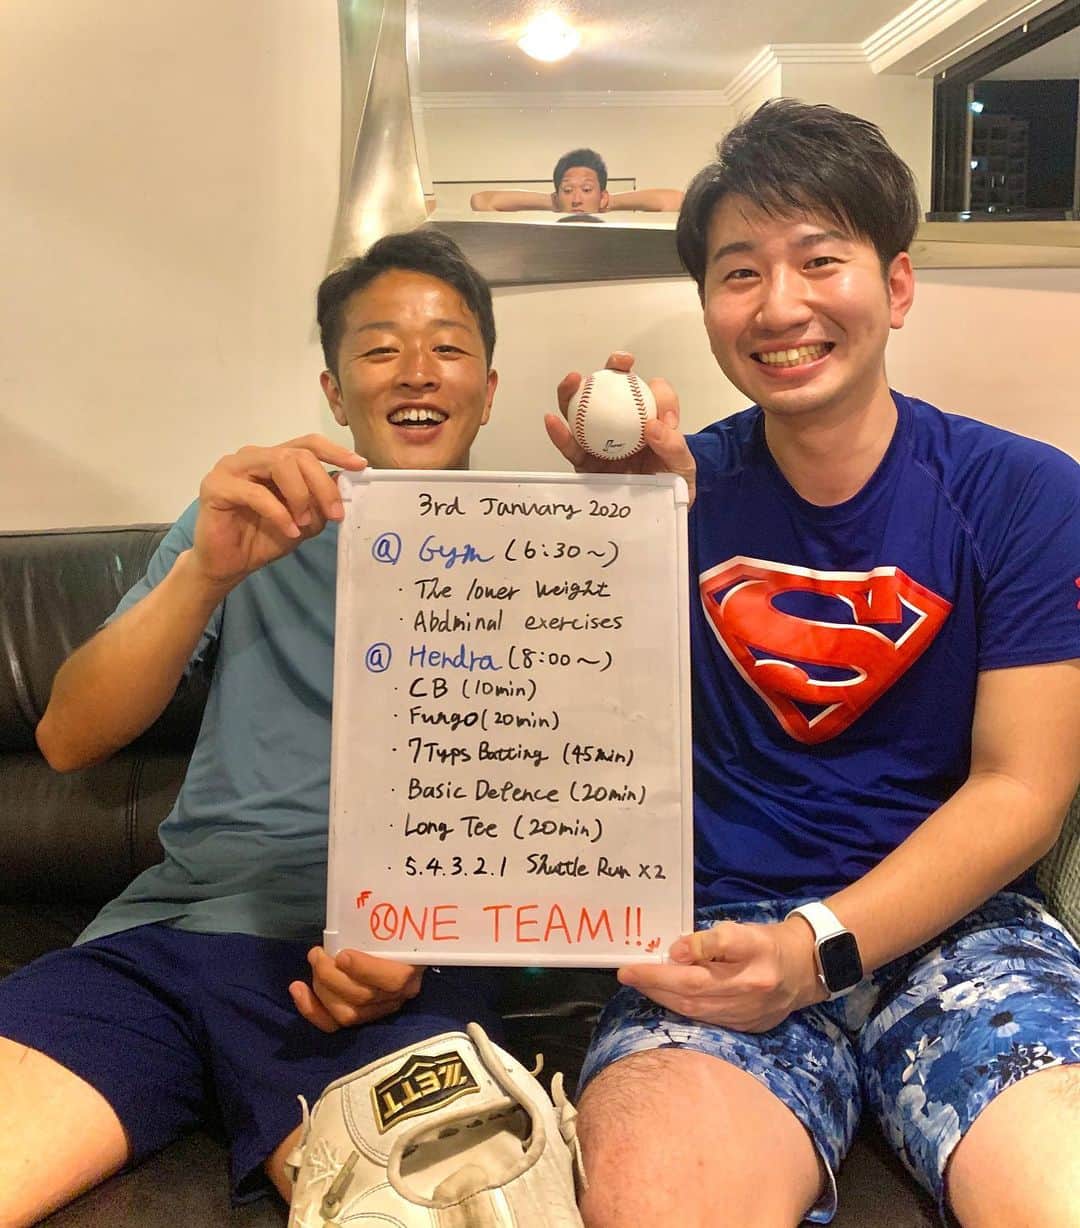 3rd January 2020
@ Gym (6:30~)
· The lower weight
· Abdminal exercises
@ Hendra (8:00~)
· CB (10min)
· Fungo (20min)
· 7 Typs Batting (45min)
· Basic Defence (20min)
· Long Tee (20min)
· 5.4.3.2.1 Shuttle Run x2
ONE TEAM!!
ZETT
S